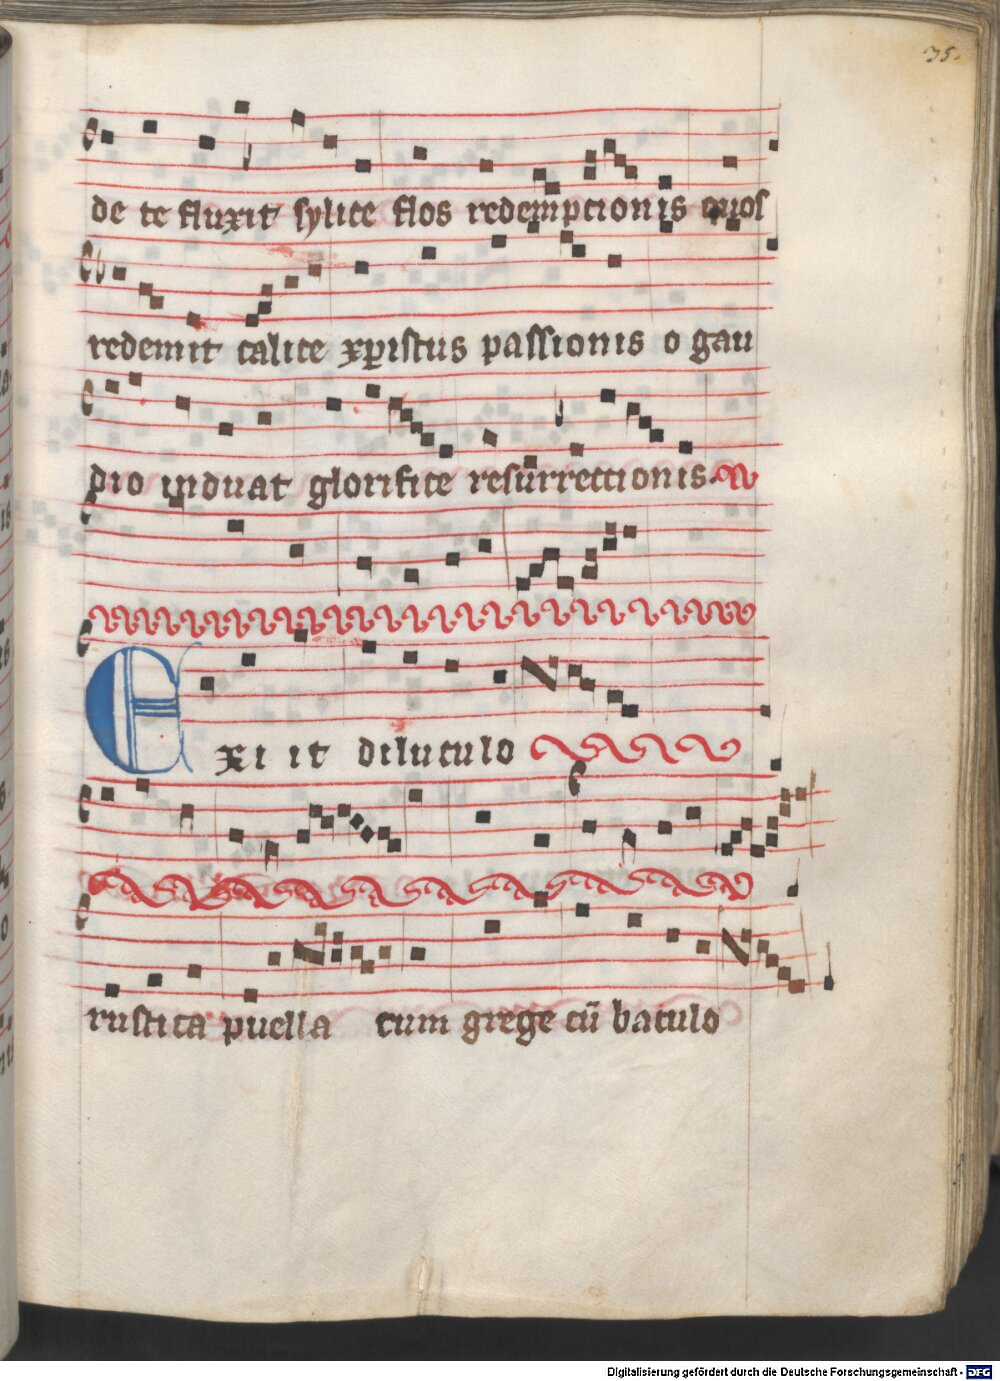 35.
de te fluxit sylice flos redempcionis quos
redemit calice xpistus passionis o gau
dio induat glorifice resurrectionis.
Exi it diluculo
rustica puella cum grege cū baculo
Digitalisierung gefördert durch die Deutsche Forschungsgemeinschaft - DFG